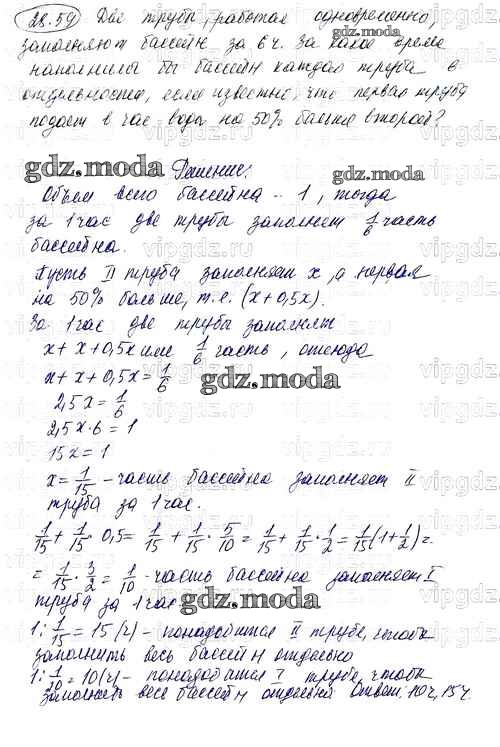 28.59 Две трубы, работая одновременно,
заполняют бассейн за 6 ч. За какое время
наполнила бы бассейн каждая труба в
отдельности, если известно, что первая труба
подает в час воды на 50% больше второй?
gdz.moda Решение:
Объем всего бассейна - 1, тогда
за 1 час две трубы заполняют 1/6 часть
бассейна.
Пусть II труба заполняет x, а первая
на 50% больше, т.е. (x+0,5x).
За 1 час две трубы заполнят
x + x+0,5x или 1/6 часть, отсюда
x + x + 0,5x = 1/6
gdz.moda
2,5x = 1/6
2,5x·6 = 1
15x = 1
x = 1/15 - часть бассейна заполняет II
труба за 1 час.
1/15 + 1/15 · 0,5 = 1/15 + 1/15 · 5/10 = 1/15 + 1/15 · 1/2 = 1/15(1+1/2) =
= 1/15 · 3/2 = 1/10 - часть бассейна заполняет I
труба за 1 час
gdz.moda
1 : 1/15 = 15 (ч) - понадобится II трубе, чтобы
заполнить весь бассейн отдельно
1 : 1/10 = 10 (ч) - понадобится I трубе, чтобы
заполнить весь бассейн отдельно Ответ: 10ч, 15ч.
gdz.moda
vipgdz.ru